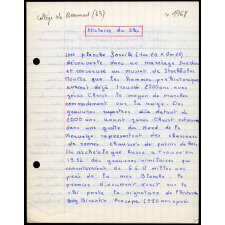 Collège de Beaumont (63)
v. 1968
Histoire du Ski
Une planche fossile (1m10 x 0m10)
découverte dans un marécage Suédois
et conservée au musée de Stockholm
prouve que les hommes préhistoriques
avaient déjà trouvé 2500 ans
avant Jésus Christ le moyen de marcher
commodément sur la neige. Des
gravures rupestres déjà datant de
2000 ans avant Jésus Christ retrouvées
dans une grotte du Nord de la
Norvège représentent des chasseurs
de rennes chaussés de patins de bois
Un archéologue Russe a trouvé en
1936 des gravures similaires qui
remonteraient de 6 à 8 milles ans
près de la mer Blanche. Le
premier document écrit sur le
ski porte la signature de l'historien
Grec Byzantin Procope (550 ans après